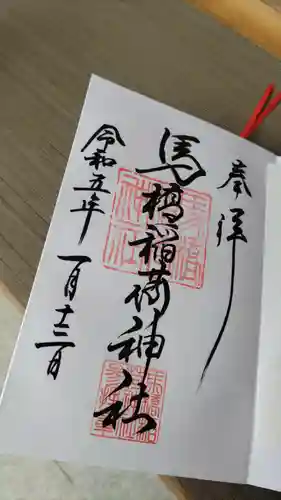 奉拝
馬橋稲荷神社
令和五年
一月十三日